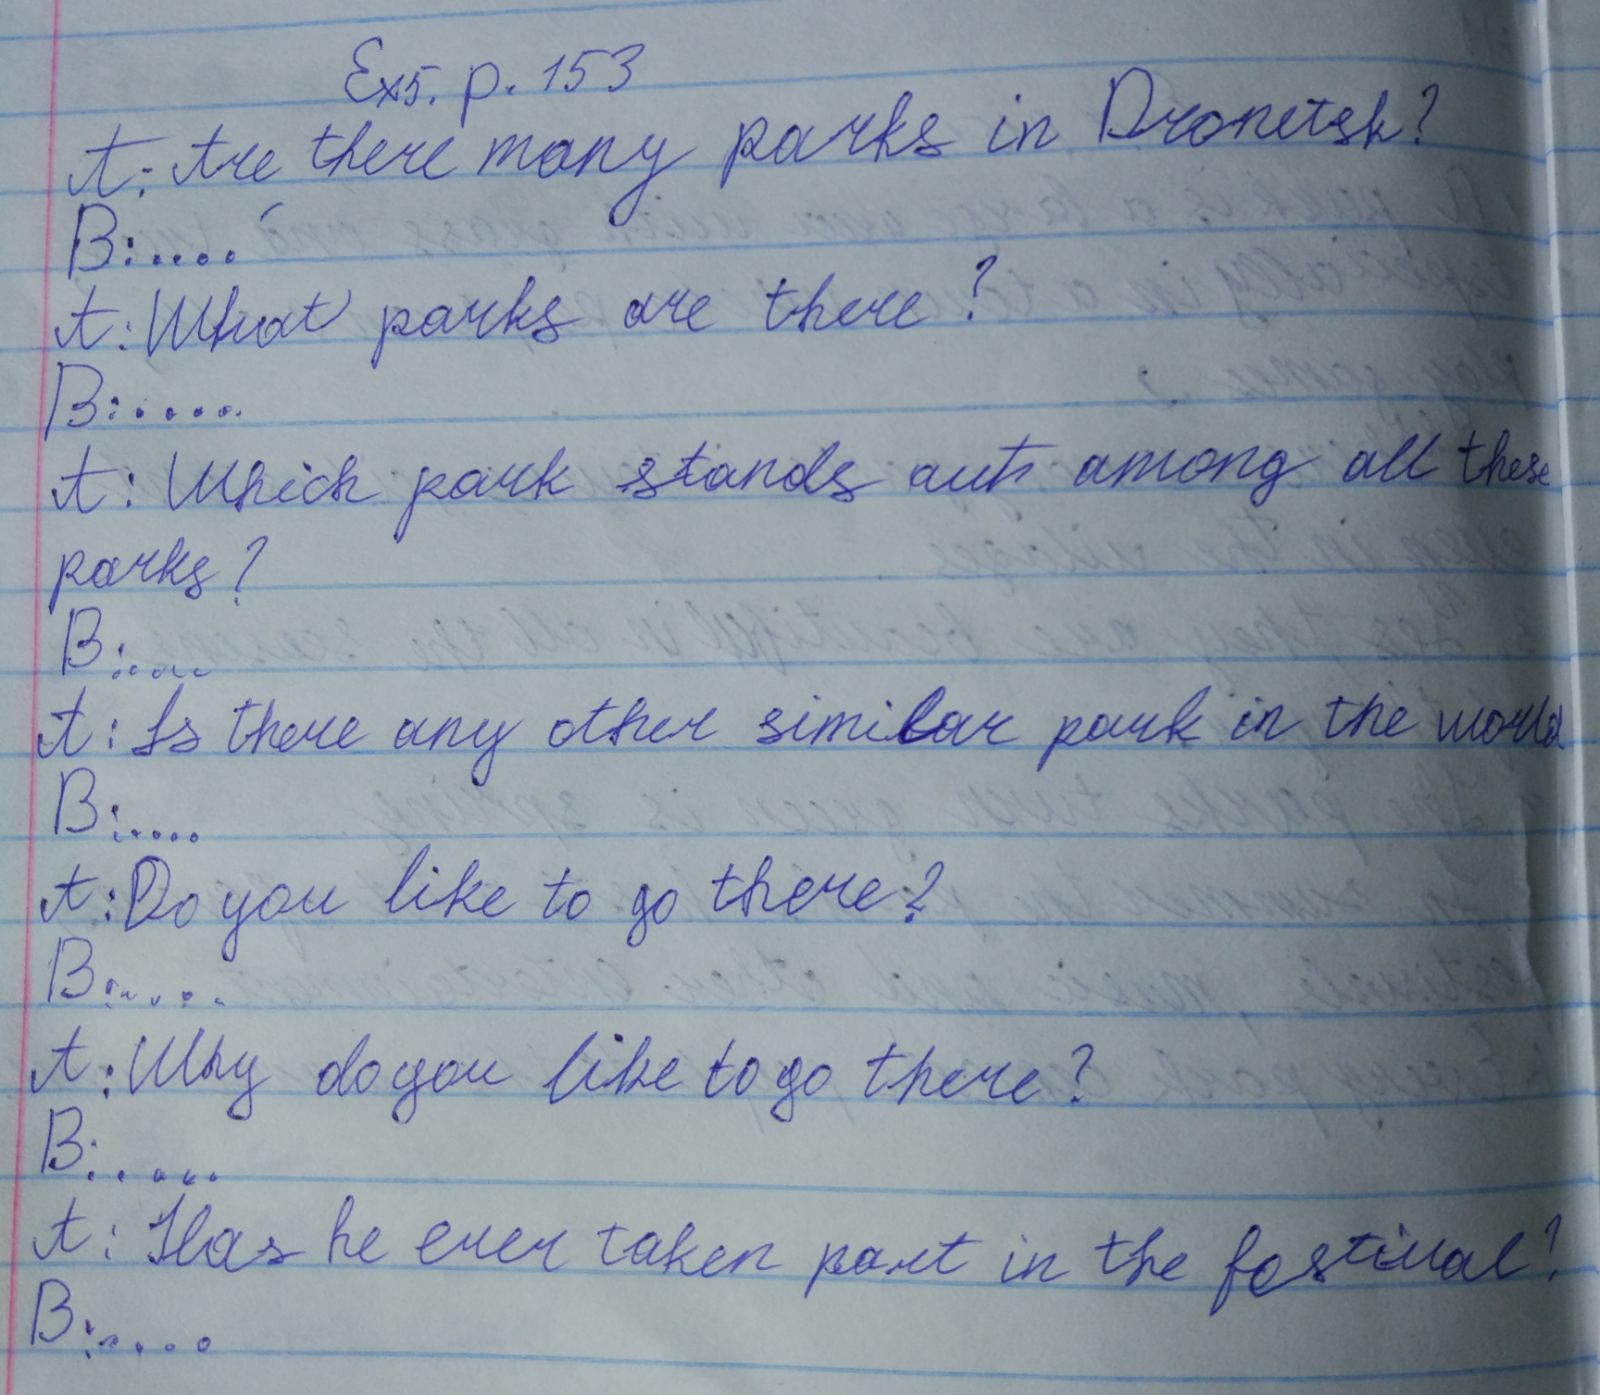 Ex5. p. 153
A: Are there many parks in Dronetsk?
B:....
A: What parks are there?
B:.....
A: Which park stands aut among all these
parks?
B:....
A: Is there any other similar park in the world
B:....
A: Do you like to go there?
B:....
A: Why do you like to go there?
B:.....
A: Has he ever taken part in the festival?
B:....